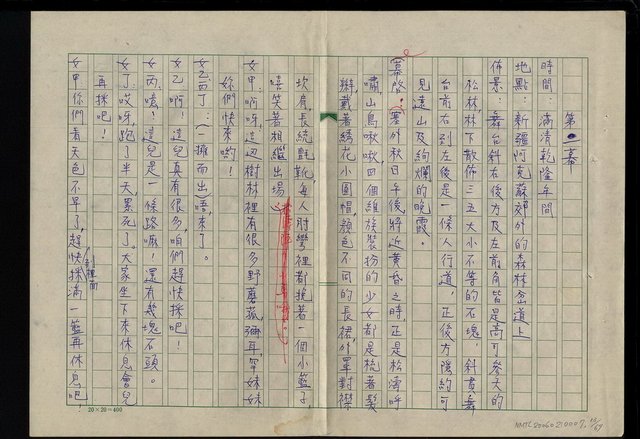 第一幕
時間：滿清乾隆年間
地點：新疆阿克蘇郊外的森林岔道上
佈景：舞台斜右後方及左前角皆是高可參天的
松林，林下散佈三五大小不等的石塊，斜貫舞
台前右到左後是一條人行道，正後方隱約可
見遠山及絢爛的晚霞。
幕啟：塞外秋日午後，將近黃昏之時，正是松濤呼
嘯，山鳥啾啾，四個維族裝扮的少女都是梳著髮
辮，戴著綉花小圓帽，顏色不同的長裙，外罩對襟
坎肩，長統氈靴，每人肘彎裡都挽著一個小籃子，
嘻笑著相繼出場
女甲：啊呀，這邊樹林裡有很多野蘑菰，彌耳罕妹妹
妳們快來喲！
女乙丙丁：（一擁而出）唔，來了。
女乙：啊！這兒真有很多，咱們趕快採吧！
女丙：嗐！這兒是一條路嘛！還有幾塊石頭。
女丁：哎呀，跑了半天，累死了。大家坐下來休息會兒
再採吧！
女甲：你們看天色不早了，趕快採滿一籃再休息吧！
到裡面
20×20=400
NMTL20060210007